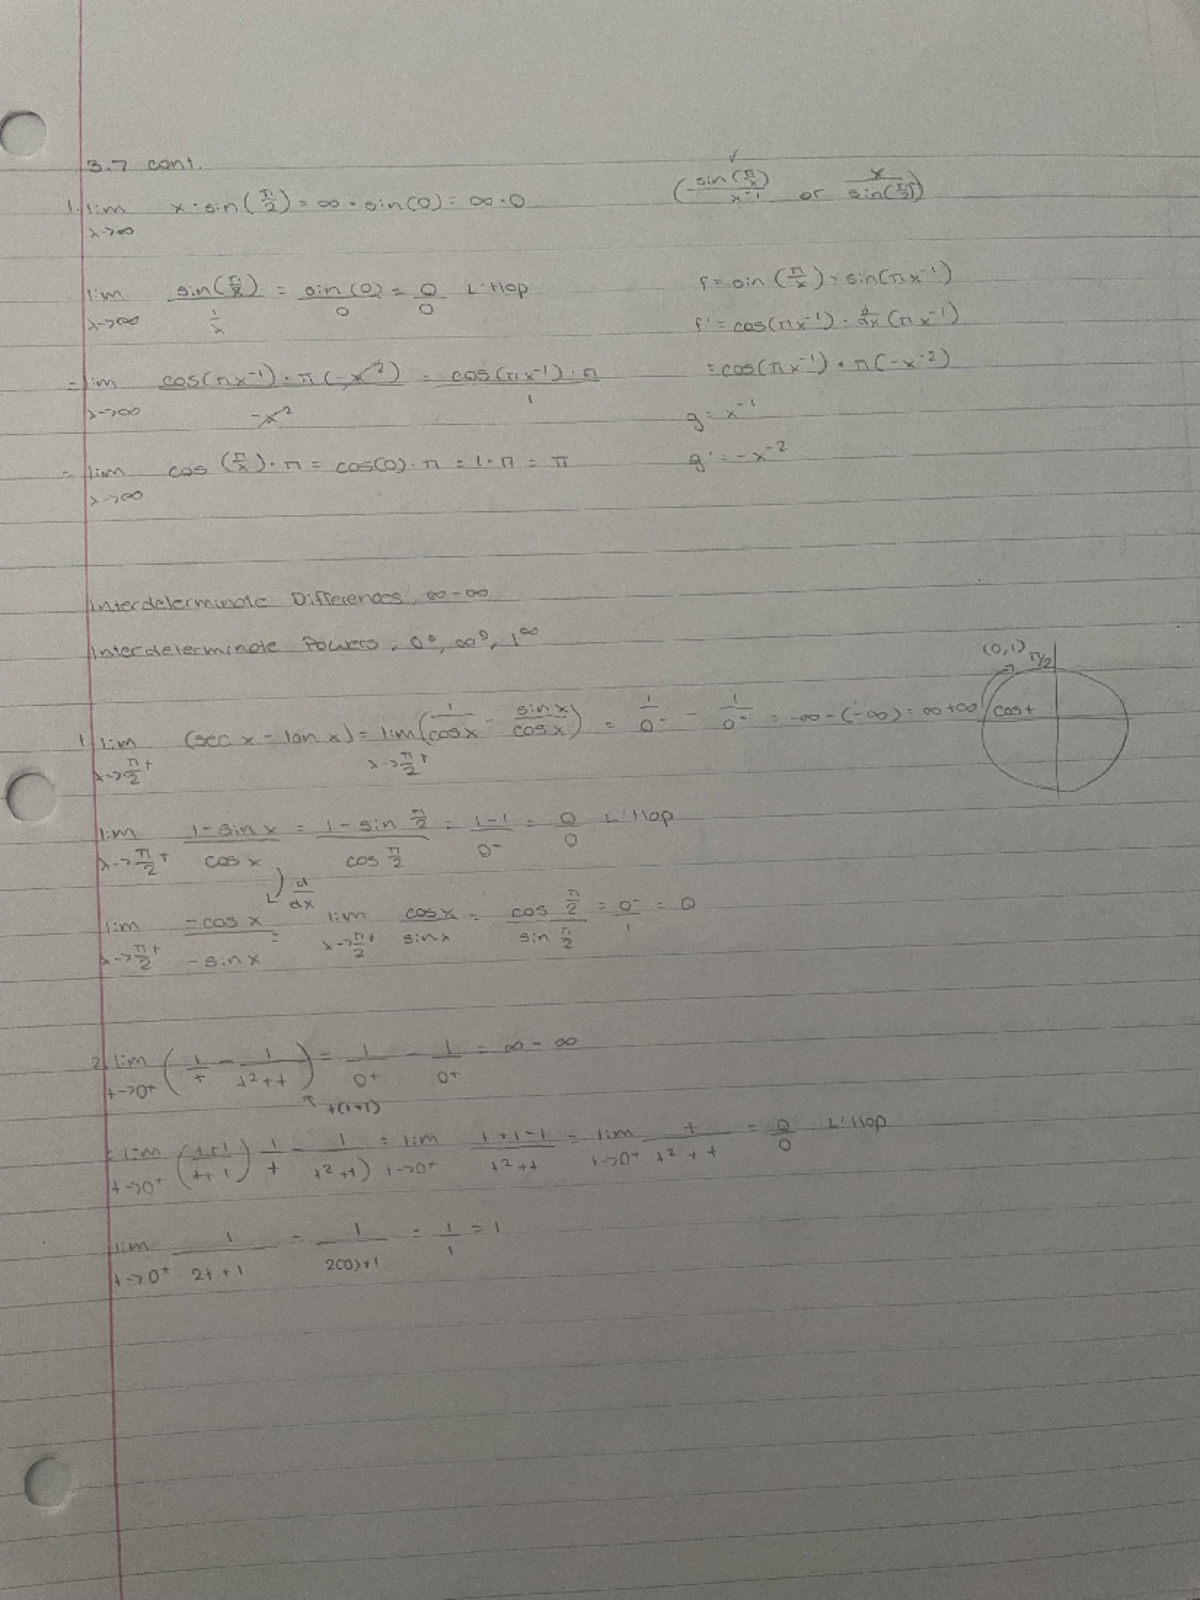 3.7 cont.
1. lim x→∞ x · sin(π/2) = ∞ · sin(0) = ∞ · 0
(sin(π/x)/x⁻¹ or x/sin(π/x)) ✓
lim x→∞ sin(π/x)/(1/x) = sin(0)/0 = 0/0 L'Hop
f = sin(π/x) = sin(πx⁻¹)
f' = cos(πx⁻¹) · d/dx(πx⁻¹)
= lim x→∞ cos(πx⁻¹) · π(-x²)/-x² = cos(πx⁻¹) · π/1
= cos(πx⁻¹) · π(-x⁻²)
g = x⁻¹
= lim x→∞ cos(π/x) · π = cos(0) · π = 1 · π = π
g' = -x⁻²
Interdeterminate Differences, ∞-∞
Interdeterminate Powers, 0⁰, ∞⁰, 1^∞
(0,1) π/2
1. lim x→π/2⁺ (sec x - tan x) = lim x→π/2⁺ (1/cosx - sinx/cosx) = 1/0⁻ - 1/0⁻ = -∞-(-∞) = ∞+∞
cost
lim x→π/2⁺ 1-sinx/cosx = 1-sin π/2/cos π/2 = 1-1/0⁻ = 0/0 L'Hop
d/dx
lim x→π/2⁺ -cosx/-sinx = lim x→π/2⁺ cosx/sinx = cos π/2/sin π/2 = 0⁻/1 = 0
2. lim t→0⁺ (1/t - 1/t²+t) = 1/0⁺ - 1/0⁺ = ∞-∞
↑ t(t+1)
= lim t→0⁺ (t+1/t+1) 1/t - 1/t²+t) = lim t→0⁺ t+1-1/t²+t = lim t→0⁺ t/t²+t = 0/0 L'Hop
lim t→0⁺ 1/2t+1 = 1/2(0)+1 = 1/1 = 1